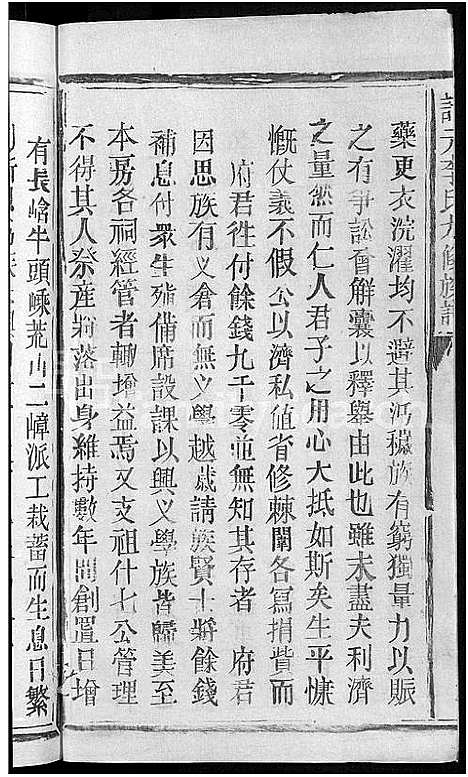 藥更衣浣濯均不避其汚穢族有窮獨量力以賑
之有爭訟會解囊以釋舉由此也雖未盡夫利濟
之量然而仁人君子之用心大抵如斯矣生平慷
慨仗義不假公以濟私值省修棘闈各寫捐貲而
府君徃付餘錢九千零並無知其存者　府君
因思族有义倉而無义學越歲請族賢士將餘錢
補息付衆生殖備席設課以興义學族皆歸美至
本房各祠經管者輙增益焉又支祖什七公管理
不得其人祭產將落出身維持數年間創置日增
有長嶺牛頭㟍荒山二嶂派工栽蓄而生息日繁